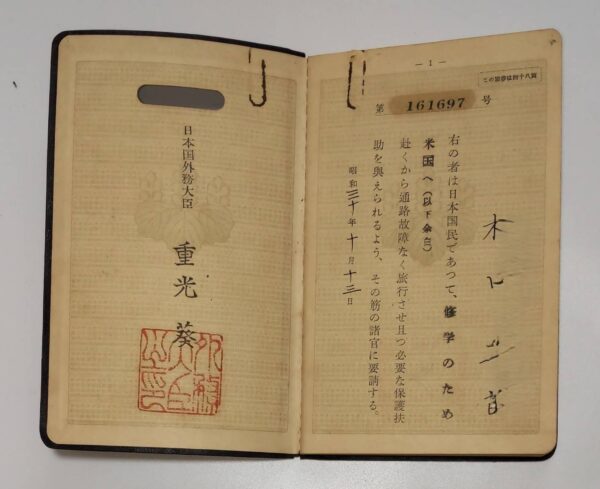 — 1 —
この旅券は四十八頁
第 161697 号
右の者は日本国民であつて、修学のため
米国へ(以下余白)
赴くから通路故障なく旅行させ且つ必要な保護扶
助を與えられるよう、その筋の諸官に要請する。
昭和三十年十月十三日
日本国外務大臣
重光葵
外務大臣之印